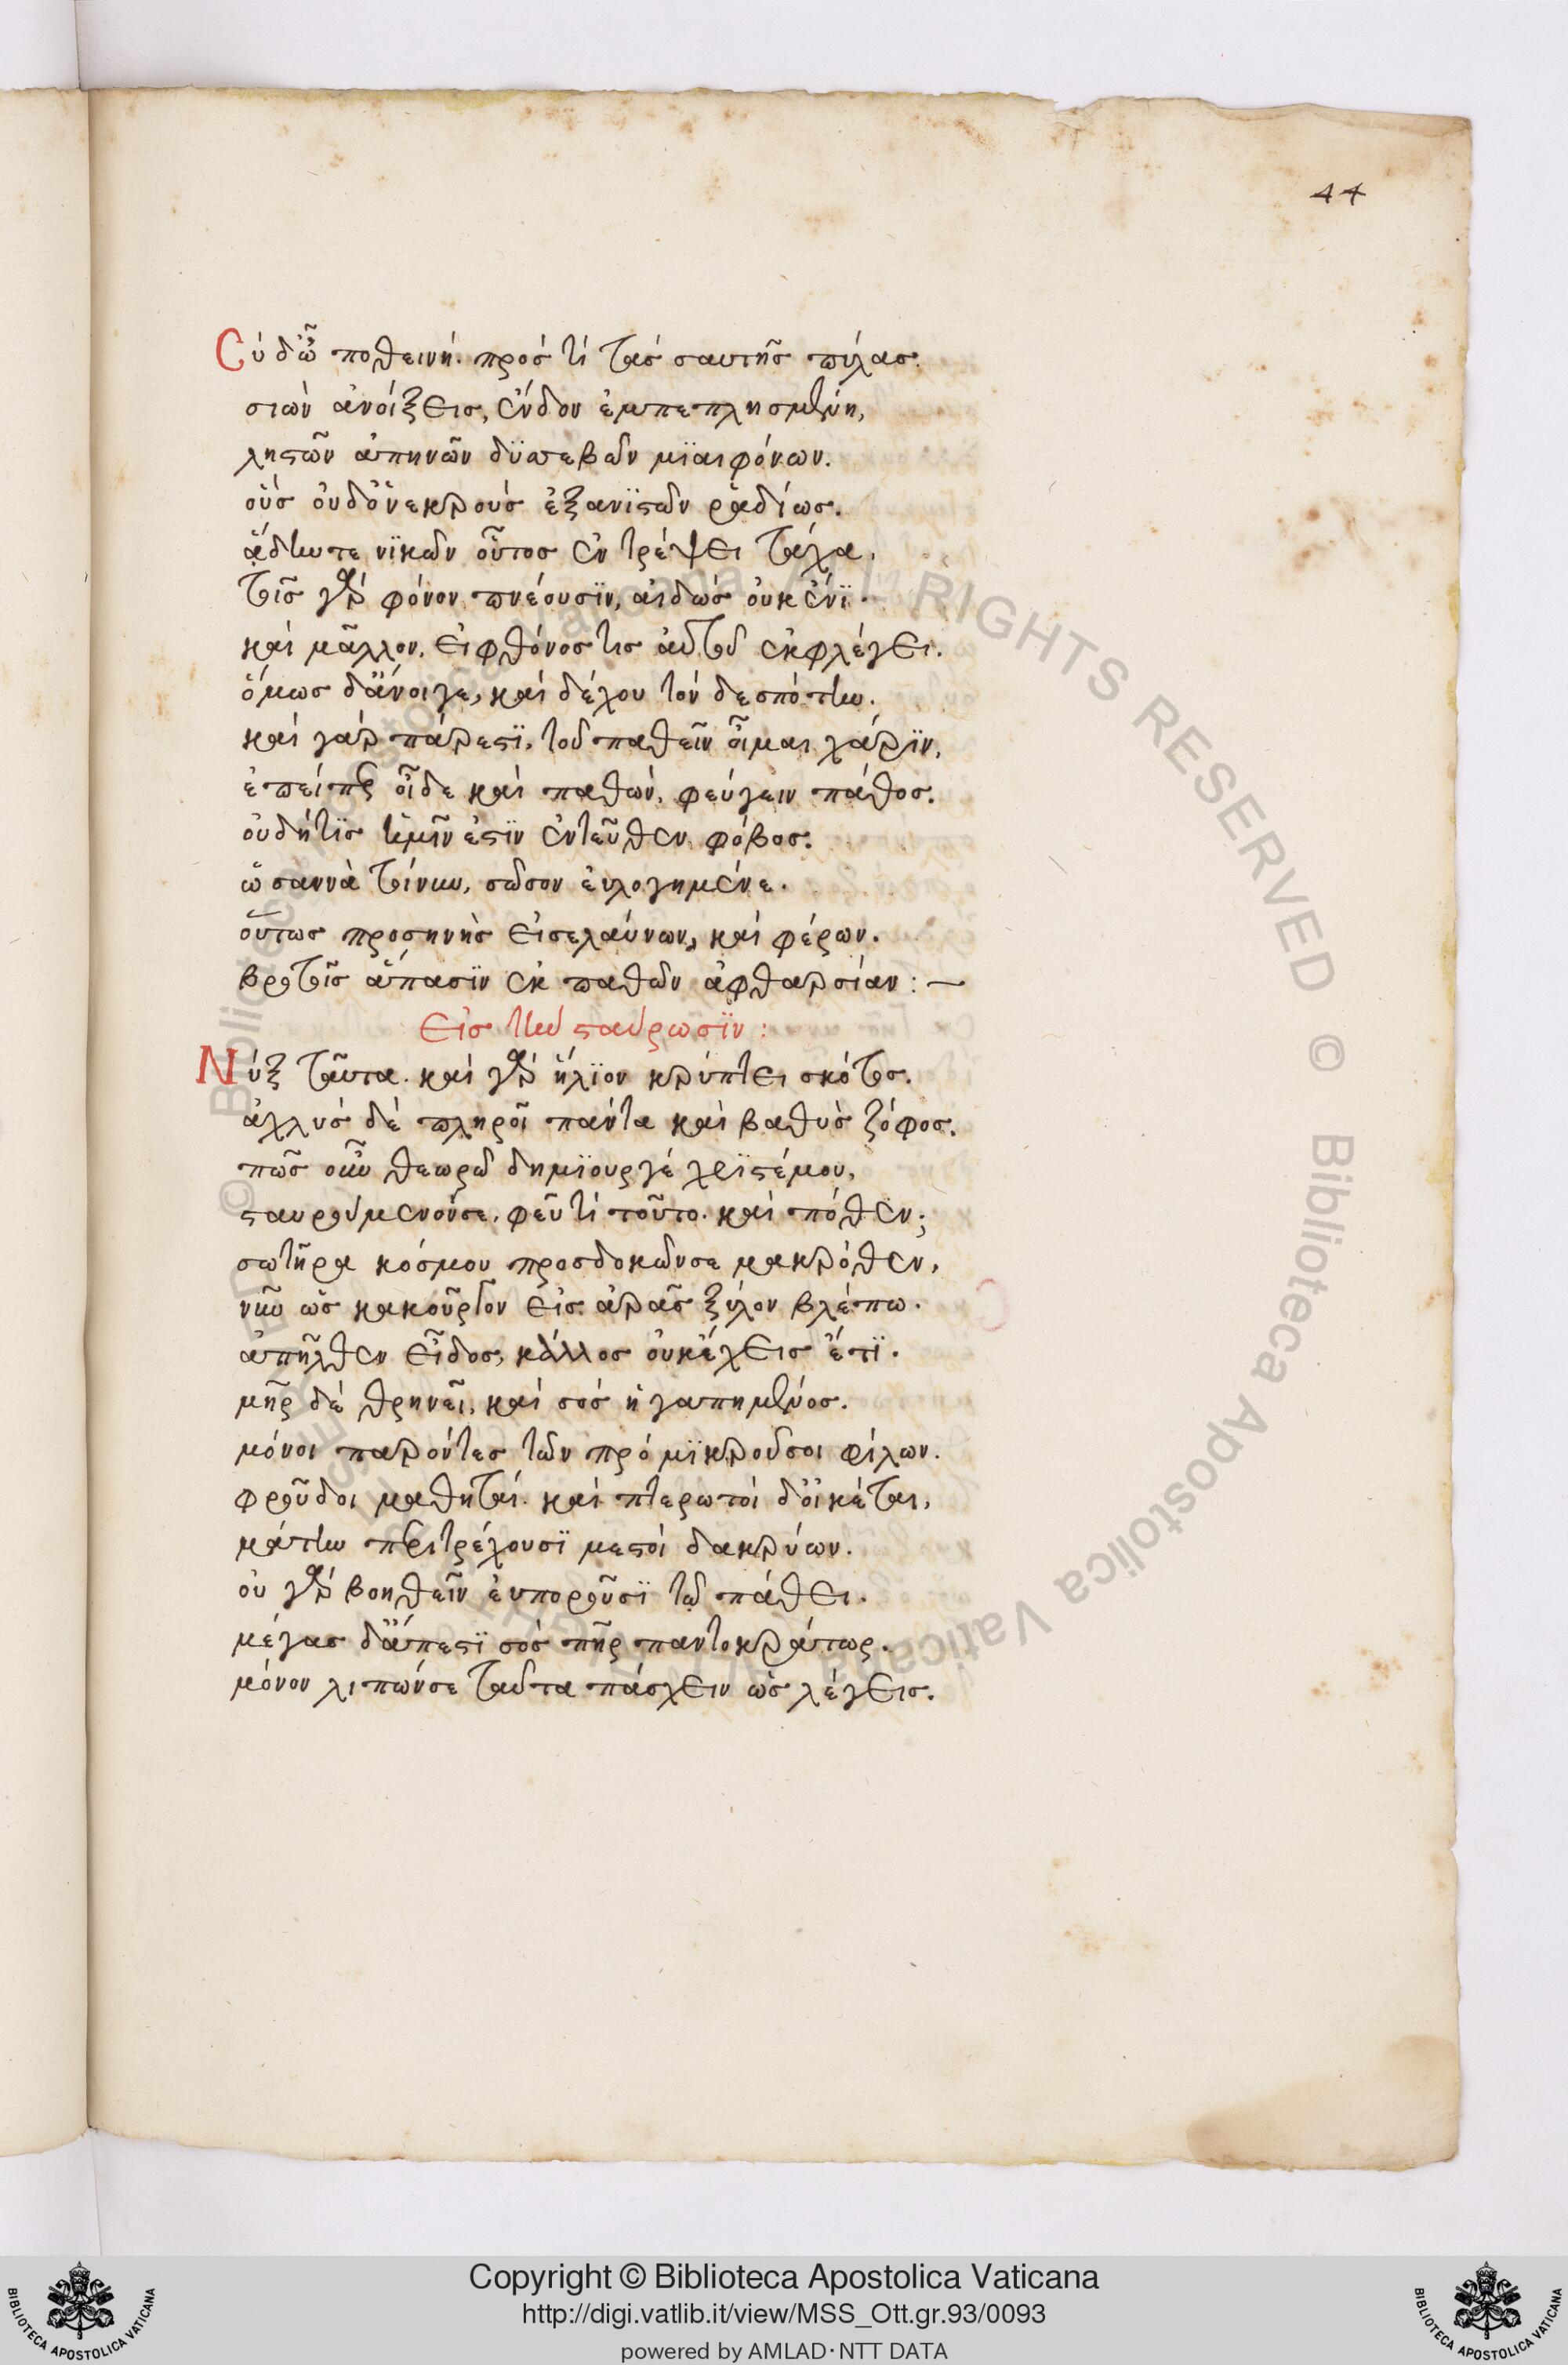 44
Σὺ δ' ὦ ποθεινή. πρὸς τί τὰς σαυτῆς πύλας.
σιὼν ἀνοίξεις, ἔνδον ἐμπεπλησμένη,
ληστῶν ἀπηνῶν δυσσεβῶν μιαιφόνων.
οὓς οὐδ' ὃ νεκροὺς ἐξανιστῶν ῥαδίως.
ᾅδην τε νικῶν οὗτος ἐντρέψει τάχα.
τοῖς γὰρ φόνον πνέουσϊν, αἰδὼς οὐκ ἔνϊ.
καὶ μᾶλλον. εἰ φθόνος τις αὐτοὺ ἐκφλέγει.
ὅμως δ' ἄνοιγε, καὶ δέχου τὸν δεσπότην.
καὶ γὰρ πάρεστϊ, τοῦ παθεῖν οἶμαι χάρϊν,
ἐπείπερ οἶδε καὶ παθὼν, φεύγειν πάθος.
οὐδήτϊς ἡμῖν ἐστϊν ἐντεῦθεν φόβος.
ὡσαννὰ τοίνυν, σῶσον εὐλογημένε.
οὕτως προσηνὴς εἰσελαύνων, καὶ φέρων.
βροτοῖς ἅπασϊν ἐκ παθῶν ἀφθαρσίαν :–
Εἰς τὴν σταύρωσϊν :
Νὺξ ταῦτα. καὶ γὰρ ἥλϊον κρύπτει σκότος.
ἀχλυς δὲ πληροῖ πάντα καὶ βαθὺς ζόφος.
πῶς οὖν θεωρῶ δημϊουργέ χριστέ μου,
σταυρούμενόν σε. φεῦ τί τοῦτο. καὶ πόθεν;
σωτῆρα κόσμου προσδοκῶν σε μακρόθεν,
νῦν ὡς κακοῦργον εἰς ἀρᾶς ξύλον βλέπω.
ἀπῆλθεν εἶδος, κάλλος οὐκ ἔχεις ἔτϊ.
μῆρ δὲ θρηνεῖ, καὶ σὸς ἠγαπημένος.
μόνοι παρόντες τῶν πρὸ μϊκροῦ σοι φίλων.
φροῦδοι μαθηταί. καὶ πτερωτοὶ δ' οἰκέται,
μάτην περιτρέχουσϊ μεστοὶ δακρύων.
οὐ γὰρ βοηθεῖν εὐποροῦσϊ τῷ πάθει.
μέγας δ' ἄπεστϊ σὸς πῆρ παντοκράτωρ.
μόνον λιπών σε ταῦτα πάσχειν ὡς λέγεις.
© Biblioteca Apostolica Vaticana ALL RIGHTS RESERVED © Biblioteca Apostolica Vaticana
Copyright © Biblioteca Apostolica Vaticana
http://digi.vatlib.it/view/MSS_Ott.gr.93/0093
powered by AMLAD·NTT DATA
BIBLIOTECA APOSTOLICA VATICANA
BIBLIOTECA APOSTOLICA VATICANA